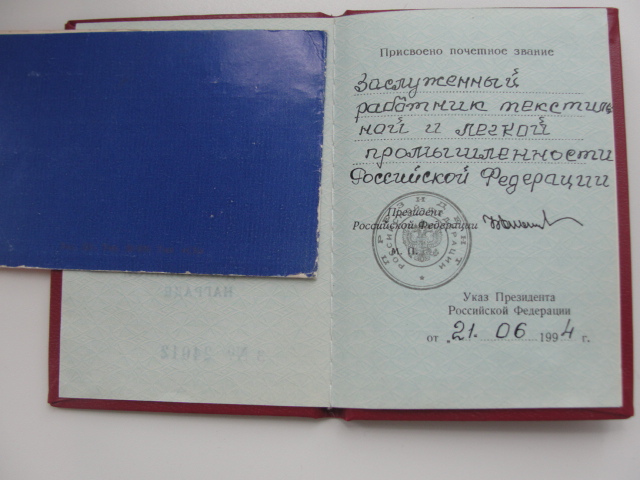 Присвоено почетное звание
Заслуженный
работник текстиль
ной и легкой
промышленности
Российской Федерации
Президент
Российской Федерации
М. П.
ПРЕЗИДЕНТ
РОССИЙСКАЯ ФЕДЕРАЦИЯ
Указ Президента
Российской Федерации
от 21. 06 1994 г.
№ 24612